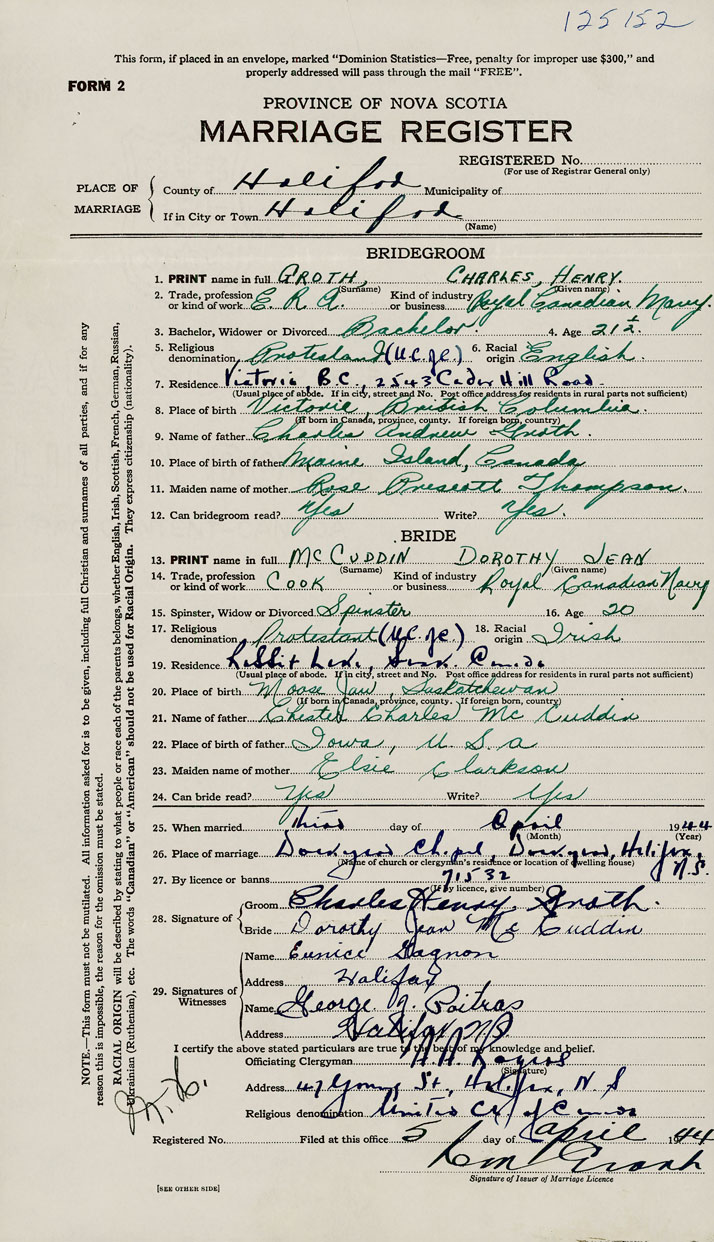 125152
This form, if placed in an envelope, marked "Dominion Statistics—Free, penalty for improper use $300," and
properly addressed will pass through the mail "FREE".
FORM 2
PROVINCE OF NOVA SCOTIA
MARRIAGE REGISTER
REGISTERED No.
(For use of Registrar General only)
PLACE OF MARRIAGE
County of Halifax Municipality of
If in City or Town Halifax
(Name)
BRIDEGROOM
1. PRINT name in full GROTH, CHARLES, HENRY.
(Surname) (Given name)
2. Trade, profession or kind of work E. R. A. Kind of industry or business Royal Canadian Navy.
3. Bachelor, Widower or Divorced Bachelor. 4. Age 21 ½.
5. Religious denomination Protestant (U.C. of C.) 6. Racial origin English.
7. Residence Victoria, B.C., 2543 Cedar Hill Road.
(Usual place of abode. If in city, street and No. Post office address for residents in rural parts not sufficient)
8. Place of birth Victoria, British Columbia.
(If born in Canada, province, county. If foreign born, country)
9. Name of father Charles Andrew Groth.
10. Place of birth of father Maine Island, Canada
11. Maiden name of mother Rose Prescott Thompson.
12. Can bridegroom read? Yes Write? Yes.
BRIDE
13. PRINT name in full McCUDDIN DOROTHY JEAN
(Surname) (Given name)
14. Trade, profession or kind of work COOK Kind of industry or business Royal Canadian Navy
15. Spinster, Widow or Divorced Spinster 16. Age 20
17. Religious denomination Protestant (U.C. of C.) 18. Racial origin Irish
19. Residence Rabbit Lake, Sask. Canada
(Usual place of abode. If in city, street and No. Post office address for residents in rural parts not sufficient)
20. Place of birth Moose Jaw, Saskatchewan
(If born in Canada, province, county. If foreign born, country)
21. Name of father Chester Charles McCuddin
22. Place of birth of father Iowa, U.S.A
23. Maiden name of mother Elsie Clarkson
24. Can bride read? Yes Write? Yes
25. When married third day of April 1944
(Month) (Year)
26. Place of marriage Dockyard Chapel, Dockyard, Halifax, N.S.
(Name of church or clergyman's residence or location of dwelling house)
27. By licence or banns 71532
(If by licence, give number)
28. Signature of
Groom Charles Henry Groth.
Bride Dorothy Jean McCuddin
29. Signatures of Witnesses
Name Eunice Gagnon
Address Halifax
Name George J. Poitras
Address Halifax NS.
I certify the above stated particulars are true to the best of my knowledge and belief.
Officiating Clergyman
(Signature)
Address 47 Young St, Halifax, N.S
Religious denomination United Ch of Canada
Registered No. Filed at this office 5 day of April 1944
Grant
Signature of Issuer of Marriage Licence
[SEE OTHER SIDE]
NOTE.—This form must not be mutilated. All information asked for is to be given, including full Christian and surnames of all parties, and if for any
reason this is impossible, the reason for the omission must be stated.
RACIAL ORIGIN will be described by stating to what people or race each of the parents belongs, whether English, Irish, Scottish, French, German, Russian,
Ukrainian (Ruthenian), etc. The words "Canadian" or "American" should not be used for Racial Origin. They express citizenship (nationality).